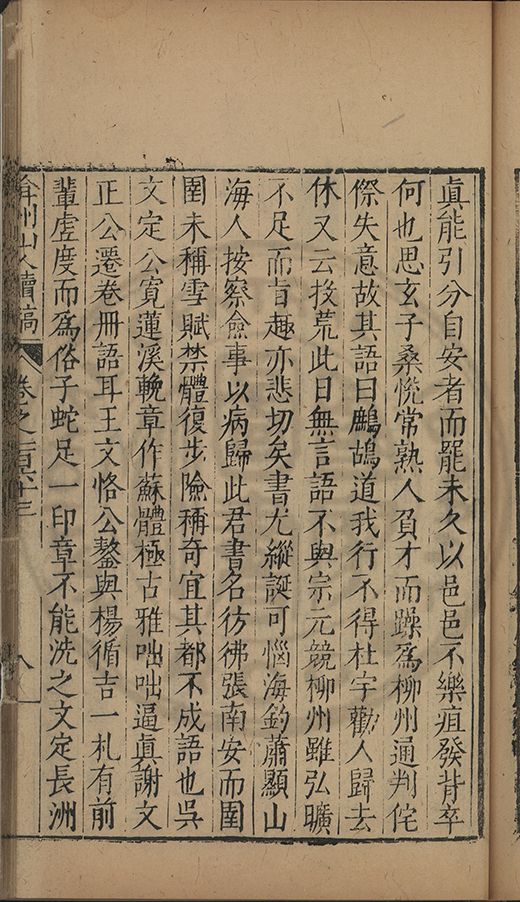 真能引分自安者而罷未久以邑邑不樂疽發背卒
何也思玄子桑悅常熟人負才而躁爲柳州通判侘
傺失意故其語曰鷓鴣道我行不得杜宇勸人歸去
休又云投荒此日無言語不與宗元競柳州雖弘曠
不足而旨趣亦悲切矣書尤縱誕可惱海釣蕭顯山
海人按察僉事以病歸此君書名彷彿張南安而圍
圍未稱雪賦禁體復步險稱奇宜其都不成語也吳
文定公寬蓮溪輓章作蘇體極古雅咄咄逼眞謝文
正公遷卷冊語耳王文恪公鏊與楊循吉一札有前
輩虗度而爲俗子蛇足一印章不能洗之文定長洲
弇州山人續稿 卷之一百六十三 八